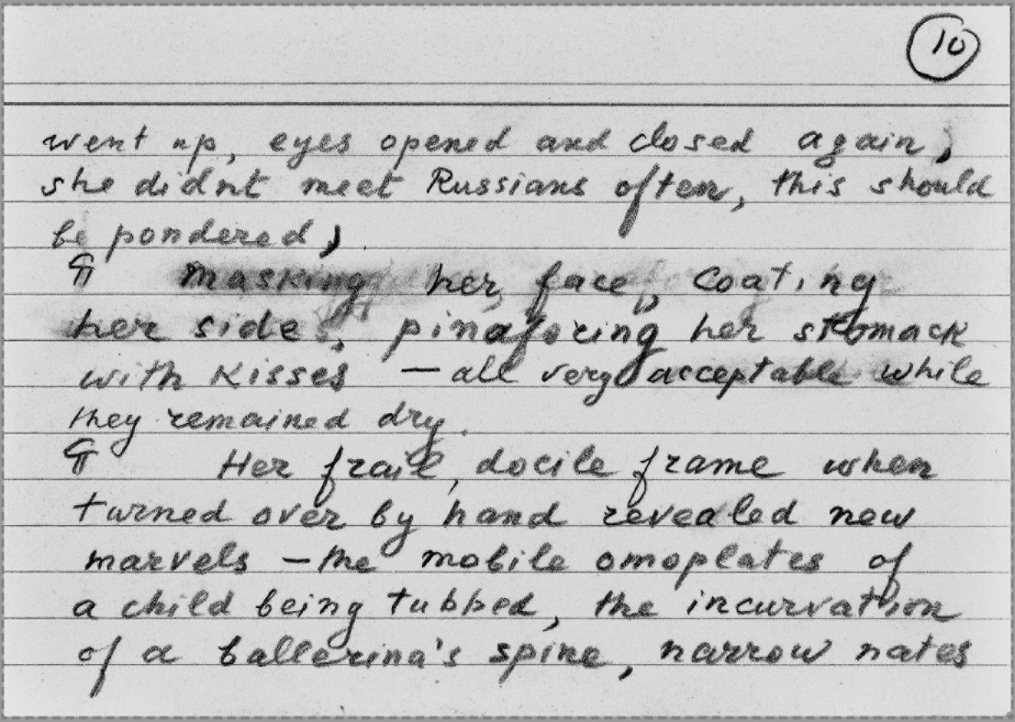 10
went up, eyes opened and closed again,
she didn't meet Russians often, this should
be pondered,
¶ Masking her face, coating
her side, pinaforing her stomack
with kisses — all very acceptable while
they remained dry.
¶ Her frail, docile frame when
turned over by hand revealed new
marvels — the mobile omoplates of
a child being tubbed, the incurvation
of a ballerina's spine, narrow nates